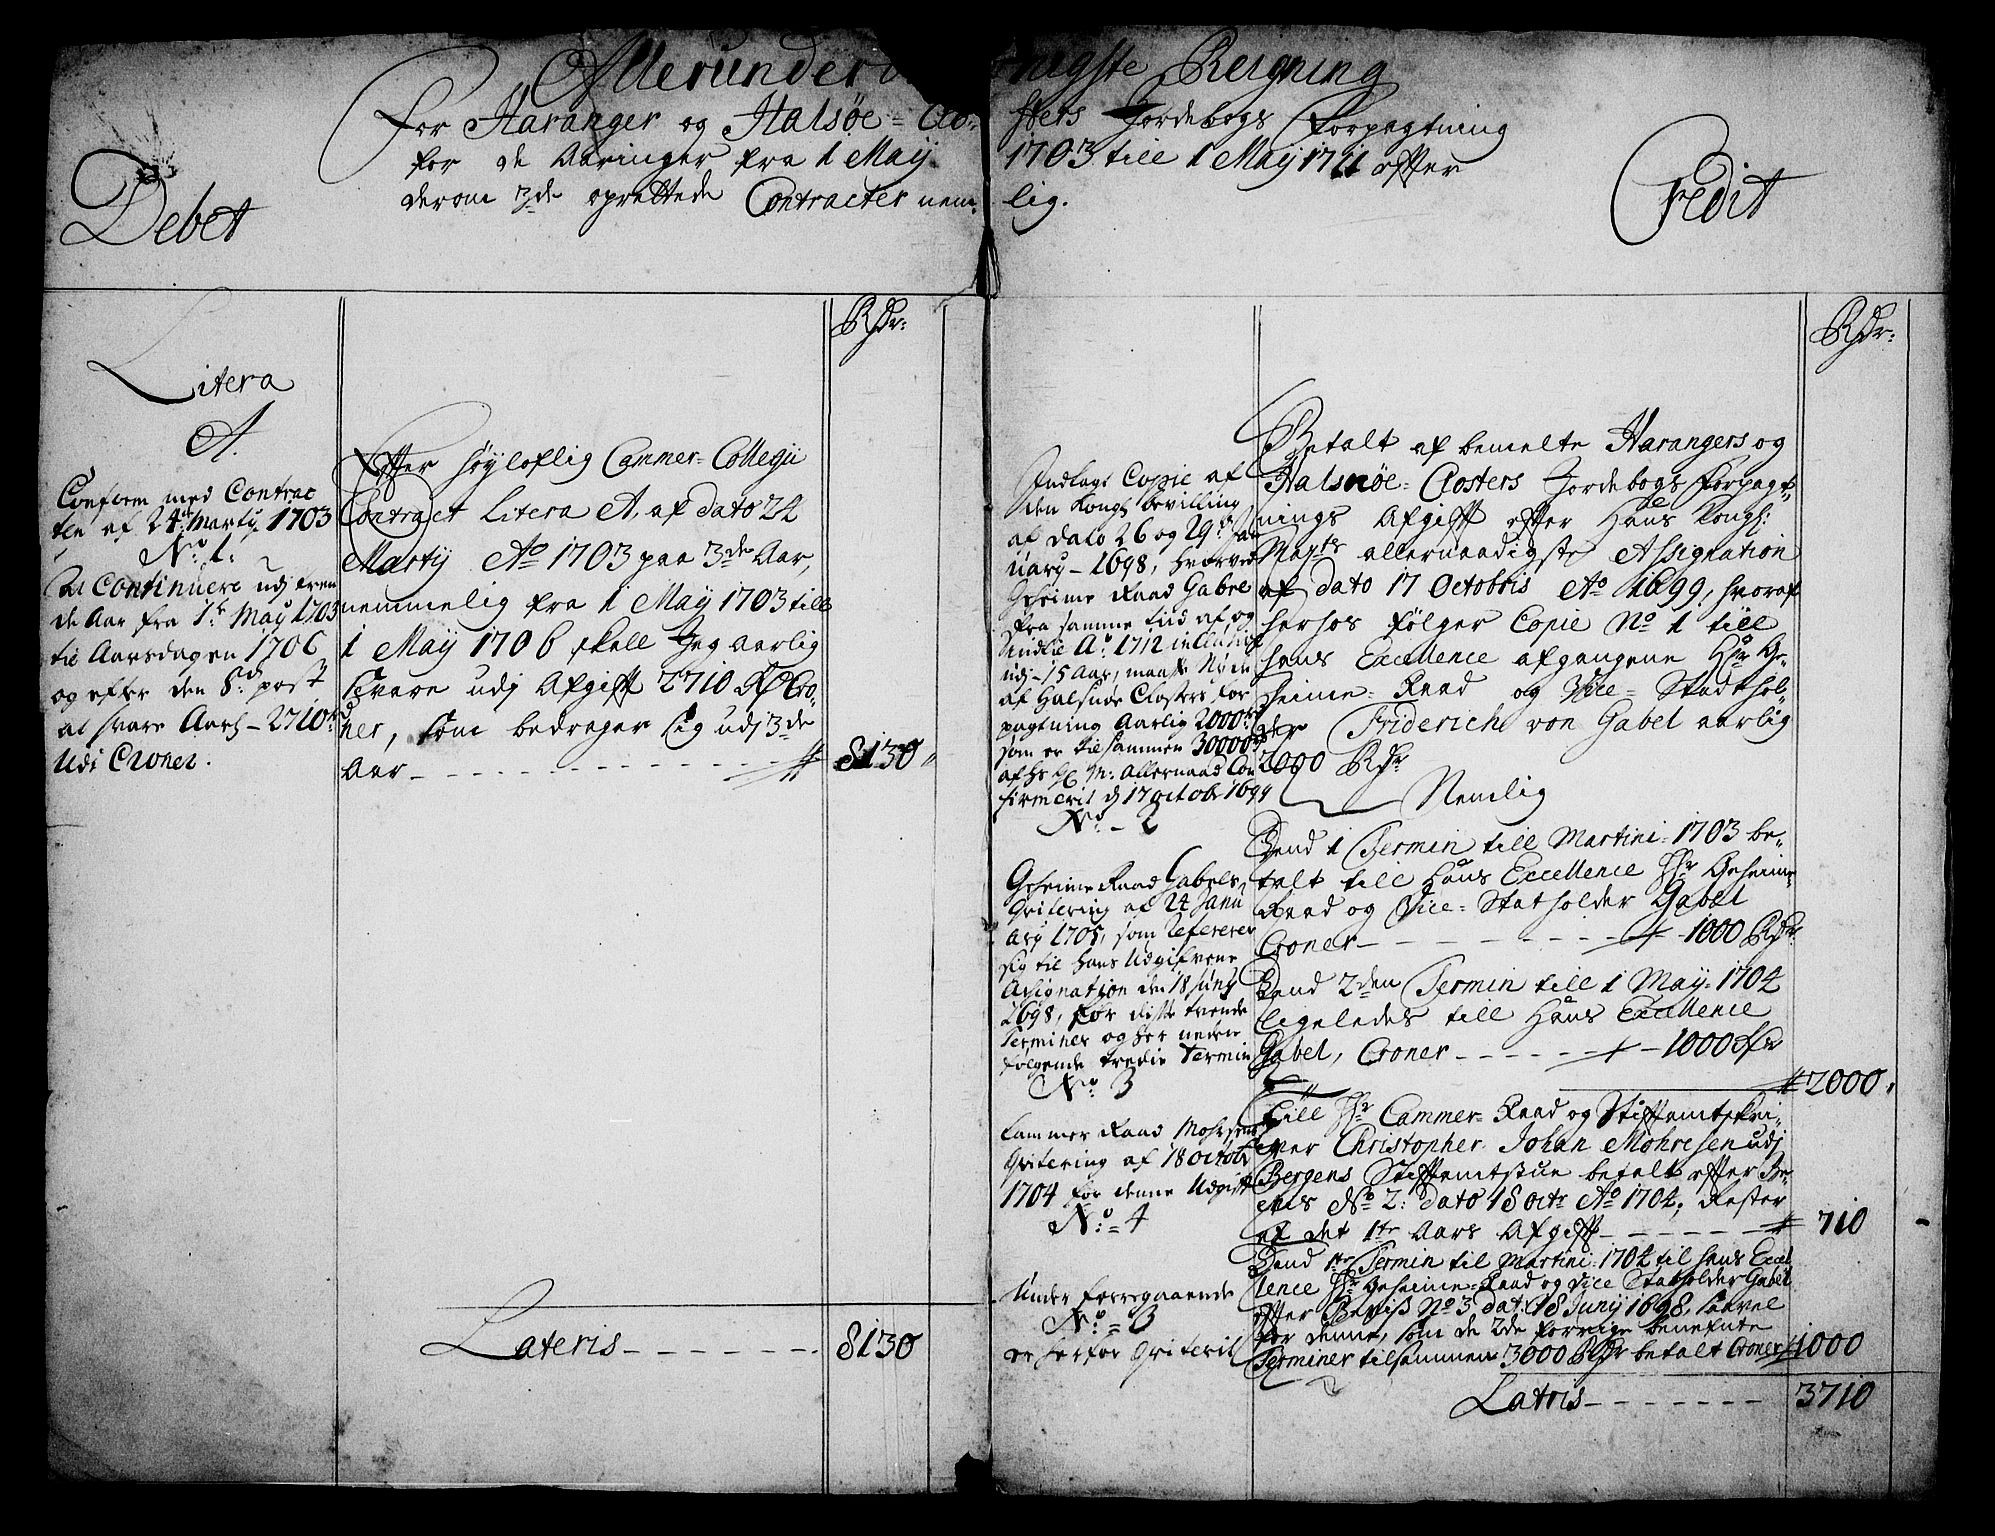 Allerunderd nigste Reigning
for Haranger og Halsøe=Clo= sters Jordebogs Forpagtning
for de Aaringer fra 1 May 1703 till 1 May 1711 effter
derom 3de oprettede Contracter nem= lig.
Debet
Credit
Rdr:
Litera
A.
Conform med Contrac
ten af 24 Marty 1703
No. 1.
At Continuere udj tren
de Aar fra 1st May 1703
til Aarsdagen 1706
og efter den 8de post
at svare Aarl- 2710 rd
udi Croner.
Effter høyloflig Cammer=Collegii
Contract Litera A. af dato 24
Marty Ao 1703 paa 3de Aar,
nemmelig fra 1 May 1703 till
1 May 1706 skall Jeg aarlig
svare udj Afgifft 2710 Rd Cro=
ner, som bedrager sig udj 3de
Aar - - - - - - - - 8130
Lateris - - - - - - 8130
Rdr:
Indlagt Copie af
den Kongl bevilling
af dato 26 og 29de Ja
nuary - 1698, hvorved
Geheime Raad Gabel
fra samme tid af og
indtil Ao 1712
udj - 15 Aar, maatte Nyde
af Halsnøe Closters for
pagtning Aarlig 2000 rd
som er til sammen 30000 rd
af hs K M: Allernaad Con
firmerit d 17 octobr 1699
No. - 2
Geheime Raad Gabels
Qvitering af 24 Janu
ary 1705, som refererer
sig til hans Udgifvene
Assignation den 18 Juny
1698, for disse tvende
Terminer og her neden
følgende tredie Termin
No 3
Cammer Raad Mohrsens
Qvitering af 18 octobr
1704 for denne Udgift
No. = 4
Under forregaaende
No. = 3
er herfor Qviterit
Betalt af bemelte Harangers og
Halsnøe=Closters Jordebogs Forpagt=
nings Afgifft effter Hans Kongl:
Mayts allernaadigste Assignation
af dato 17 Octobris Ao 1699, hvoraf
herhos følger Copie No 1 till
hans Excellence afgangene Hr Ge=
heime=Raad og Vice=Stadthol=
der Friderich von Gabel aarlig
2000 Rdr
Nemlig
Dend 1 Termin till Martini 1703 be=
talt till Hans Excellence Hr Geheime=
Raad og Vice=Statholder Gabel
Croner - - - - - - - - 1000 Rdr
Dend 2den Termin till 1 May 1704
ligeledes till Hans Excellence
Gabel, Croner - - - - - - - 1000 Rdr
2000
Till Hr Cammer=Raad og Stifftamtskri=
ver Christopher Johan Mohresen udj
Bergens Stifftamtstue betalt effter Be=
vis No 2: dato 18 octr Ao 1704, Rester
af det 1te Aars Afgifft - - - - - 710
Dend 1te Termin til Martini 1704 til hans Excel
lence Hr Geheime=Raad og Vice Statholder Gabel
effter Beviss No 3 dat: 18 Juny 1698, saavel
for denne, som de 2de forrige benefnte
Terminer tilsammen 3000 Rdr betalt Croner 1000
Latris - - - - - - - 3710